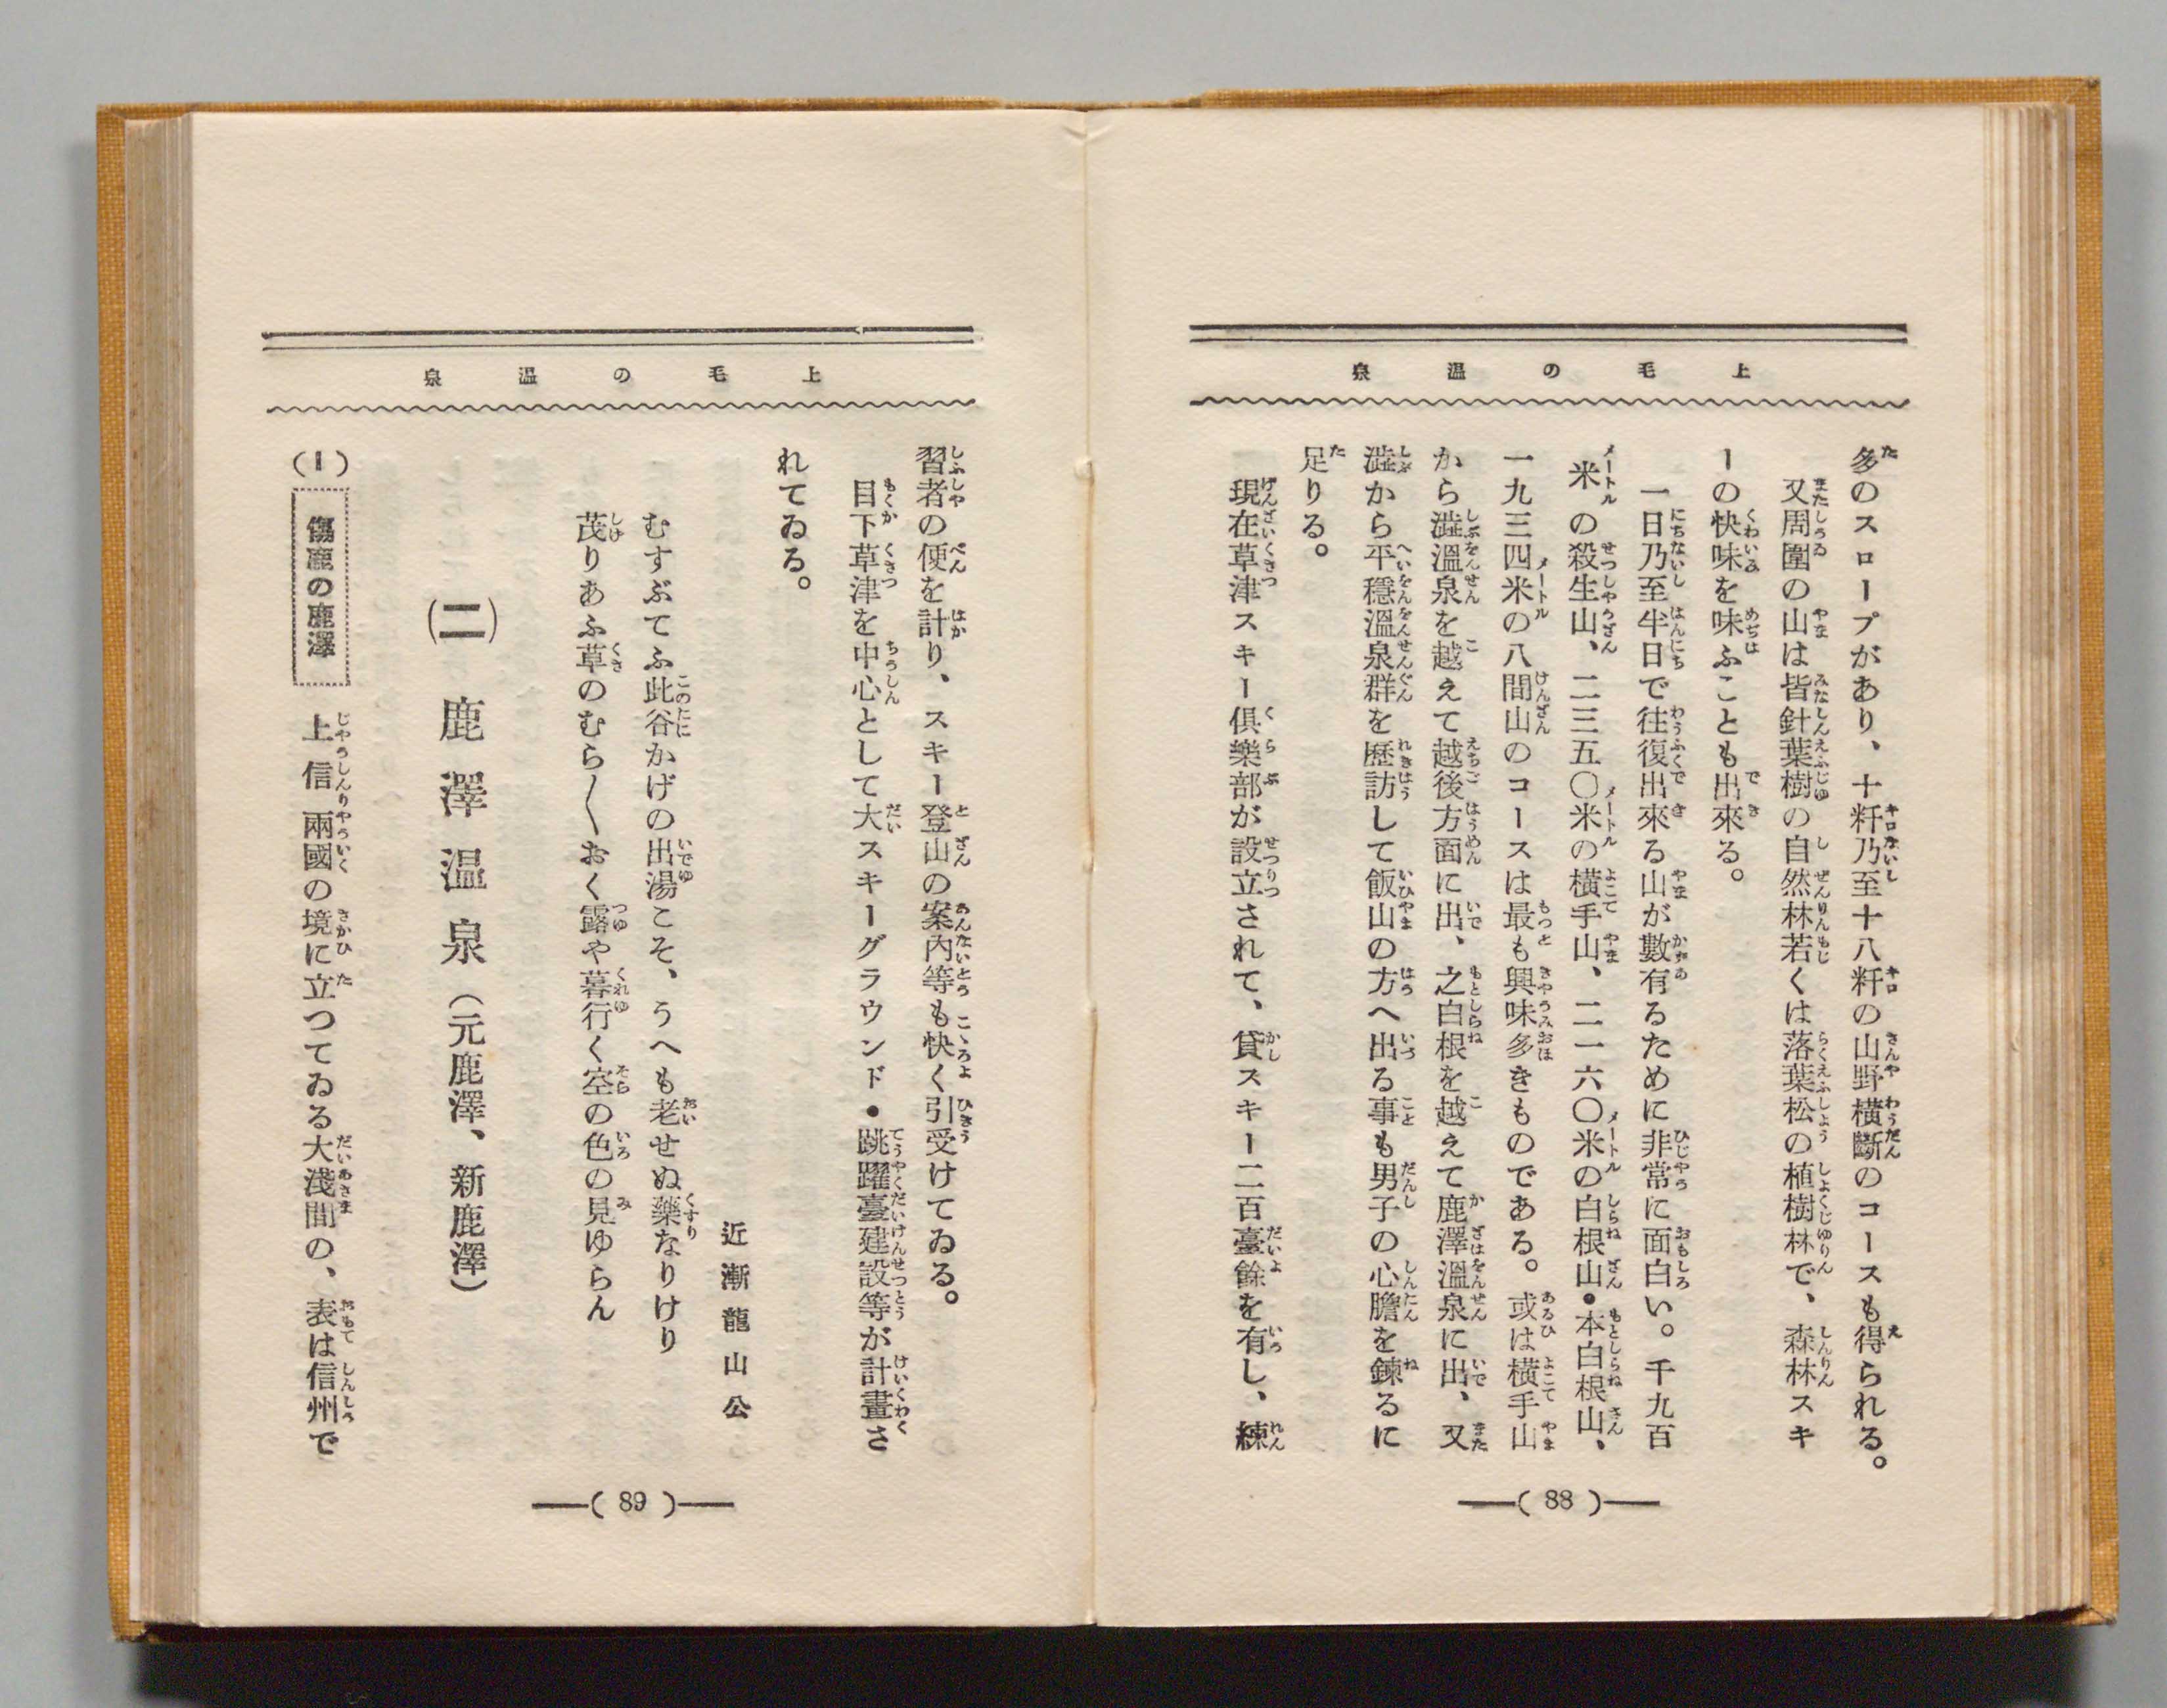 上毛の溫泉
多のスロープがあり、十粁乃至十八粁の山野橫斷のコースも得られる。
又周圍の山は皆針葉樹の自然林若くは落葉松の植樹林で、森林スキ
ーの快味を味ふことも出來る。
一日乃至半日で往復出來る山が數有るために非常に面白い。千九百
米の殺生山、二三五〇米の橫手山、二一六〇米の白根山・本白根山、
一九三四米の八間山のコースは最も興味多きものである。或は橫手山
から澁溫泉を越えて越後方面に出、之白根を越えて鹿澤溫泉に出、又
澁から平穩溫泉群を歷訪して飯山の方へ出る事も男子の心膽を鍊るに
足りる。
現在草津スキー俱樂部が設立されて、貸スキー二百臺餘を有し、練
―( 88 )―
上毛の溫泉
習者の便を計り、スキー登山の案內等も快く引受けてゐる。
目下草津を中心として大スキーグラウンド・跳躍臺建設等が計畫さ
れてゐる。
近漸龍山公
むすぶてふ此谷かげの出湯こそ、うへも老せぬ藥なりけり
茂りあふ草のむら〱おく露や暮行く空の色の見ゆらん
(二) 鹿澤溫泉(元鹿澤、新鹿澤)
(1) 傷鹿の鹿澤 上信兩國の境に立つてゐる大淺間の、表は信州で
―( 89 )―